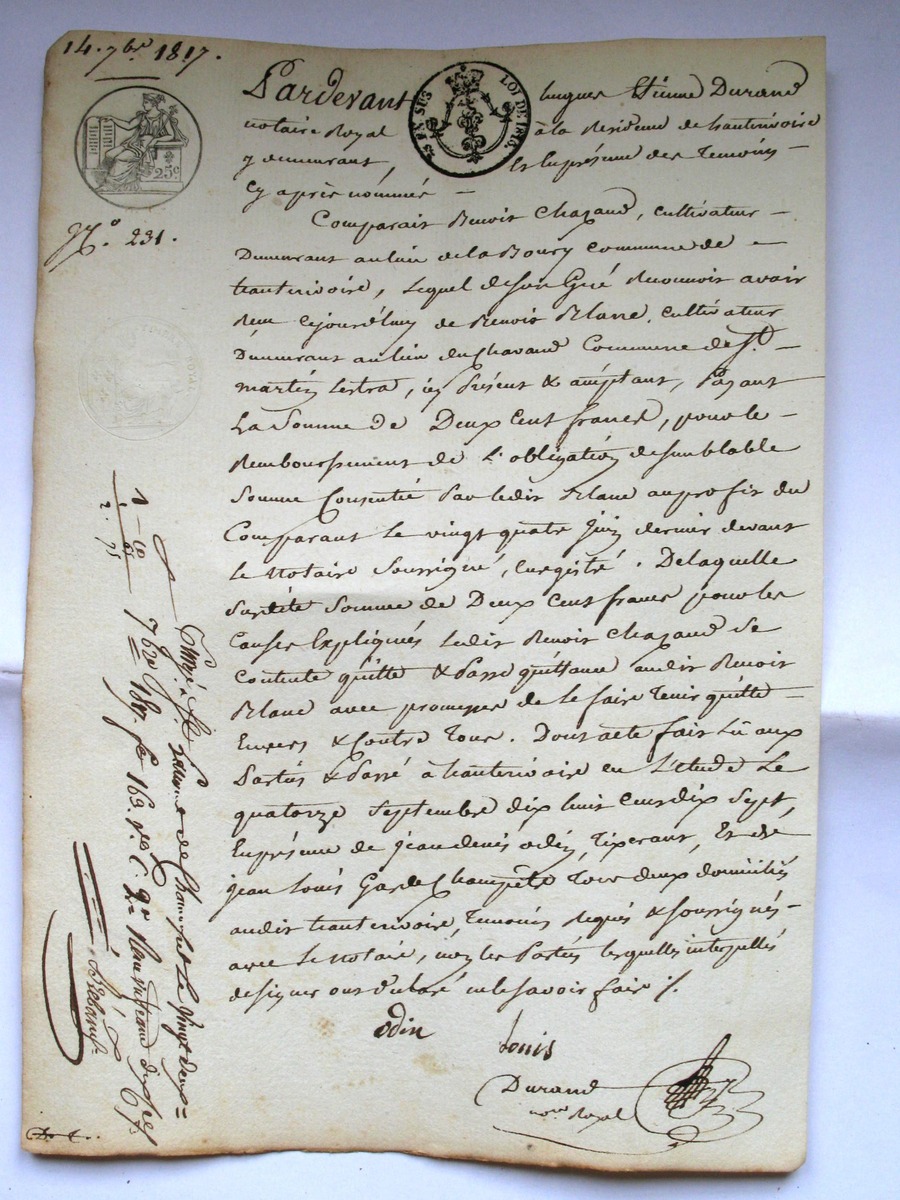 14. 7bre 1817.
25c
EN SUS
LOI DE 1816
No. 231.
Pardevant hugues Etienne Durand
notaire Royal à la Residence de hautérivoire
y demeurant, et En présence des Temoins
Cy après nommés
Comparait Benoit Chazaud, cultivateur
Demeurant au lieu de la Boury Commune de
hauterivoire, Lequel de son Gré Reconnoit avoir
Recu Cejourd'huy de Benoit Blanc, cultivateur
Demeurant au lieu du Chavand Commune de St.
martin Lestra, icy Présent & acceptant, Payant
La Somme de Deux Cent francs, pour le
Remboursement de L'obligation de semblable
Somme Consentie Par ledit Blanc au profit du
Comparant Le vingt quatre Juin dernier devant
Le Notaire Soussigné, Enregistré. De laquelle
Susdite Somme de Deux Cent francs pour les
Causes Expliqués Ledit Benoit Chazaud Se
Contente quitte & Passe quittance audit Benoit
Blanc avec promesse de le faire Tenir quitte
Envers & Contre Tous. Dont acte fait Lû aux
Parties & Passé à hauterivoire en L'etude Le
quatorze Septembre dix huit cent dix Sept,
En présence de jean denis odin, Tixerant, Et de
jean Louis Garde Champêtre Tous deux domiciliés
audit hauterivoire, Temoins Requis & Soussignés
avec Le Notaire, non les Parties lesquelles interpellés
de signer ont déclaré ne le savoir faire ./.
odin
Louis
Durand
nore Royal
1 – 10
2. 75
Enregé à St Laurent de Chamousset Le Vingt deux
7bre 1817 fo 163. Vo C. 2